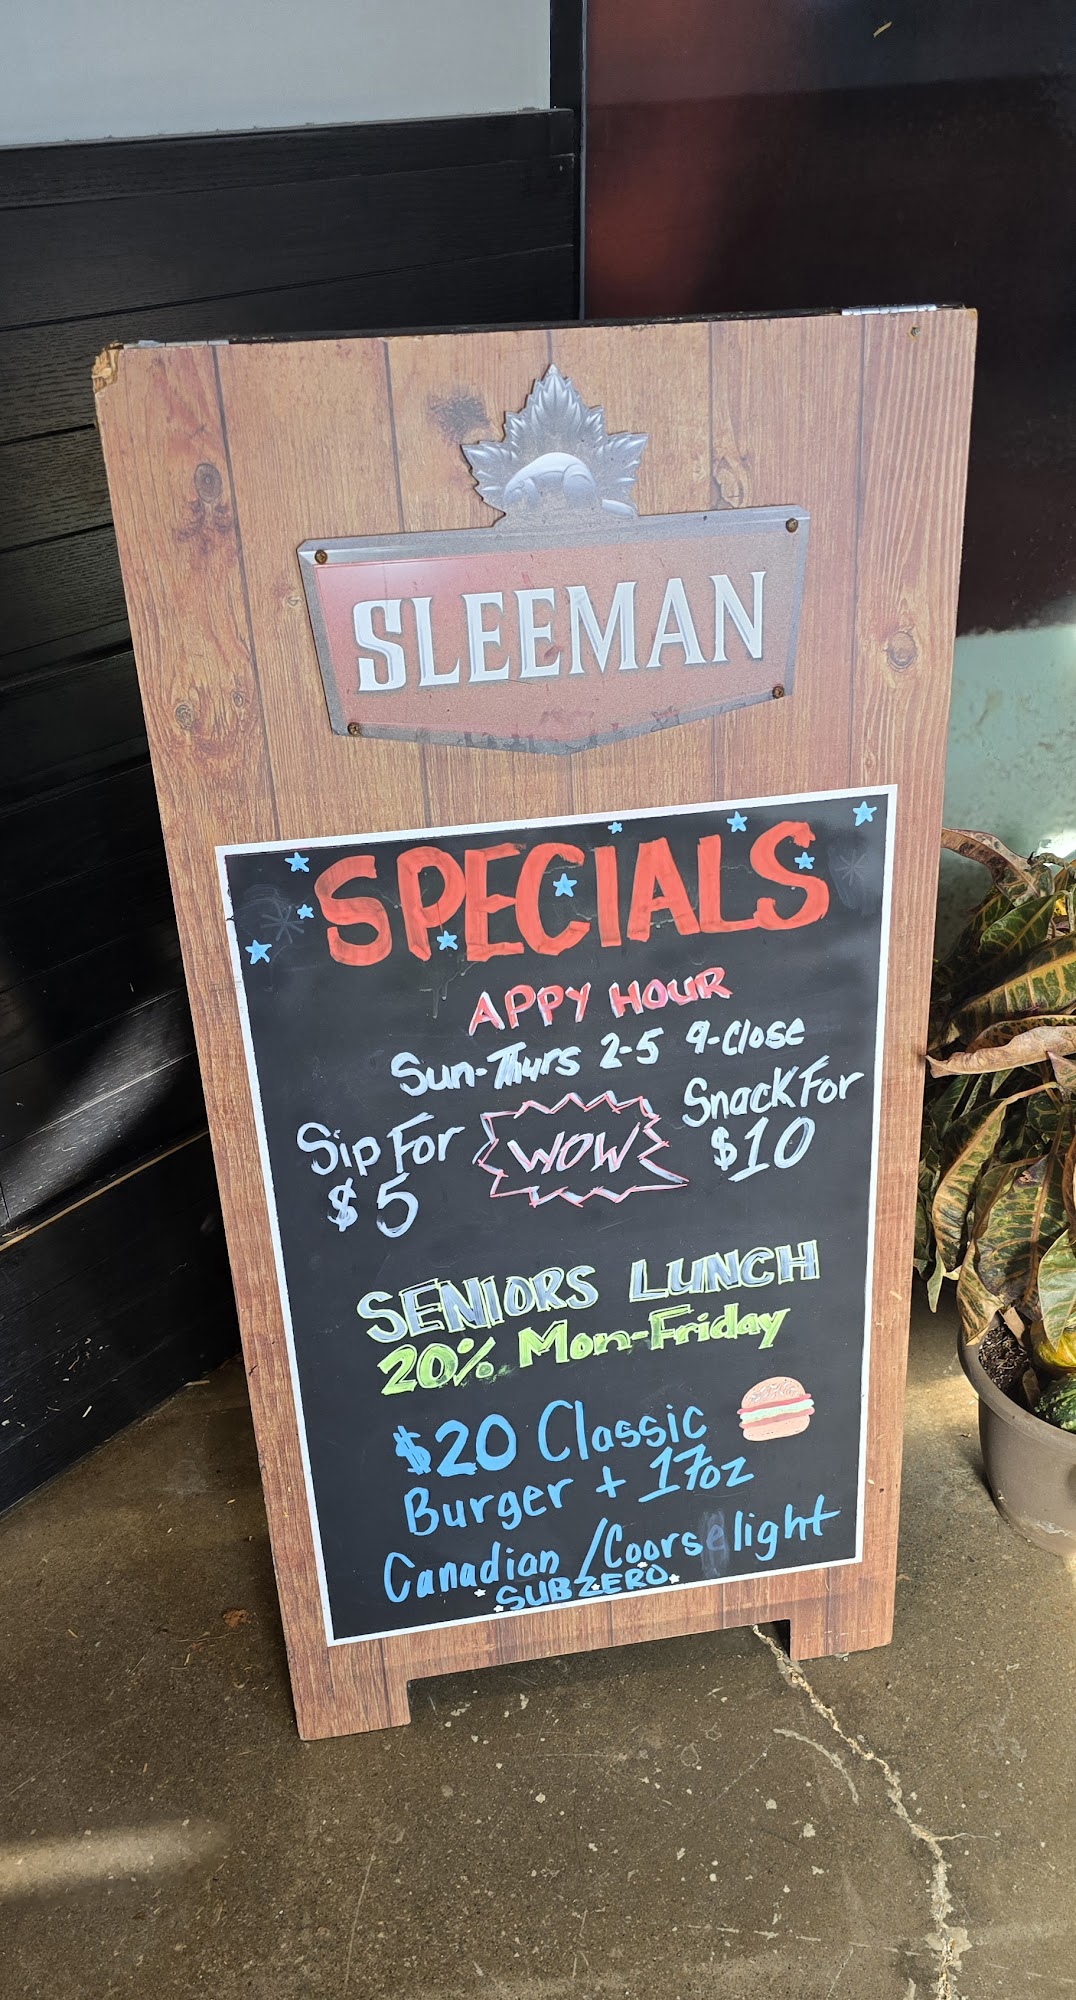 SLEEMAN
SPECIALS
APPY HOUR
Sun-Thurs 2-5 9-Close
Sip For
$5
WOW
Snack For
$10
SENIORS LUNCH
20% Mon-Friday
$20 Classic
Burger + 17oz
Canadian /Coors light
SUBZERO